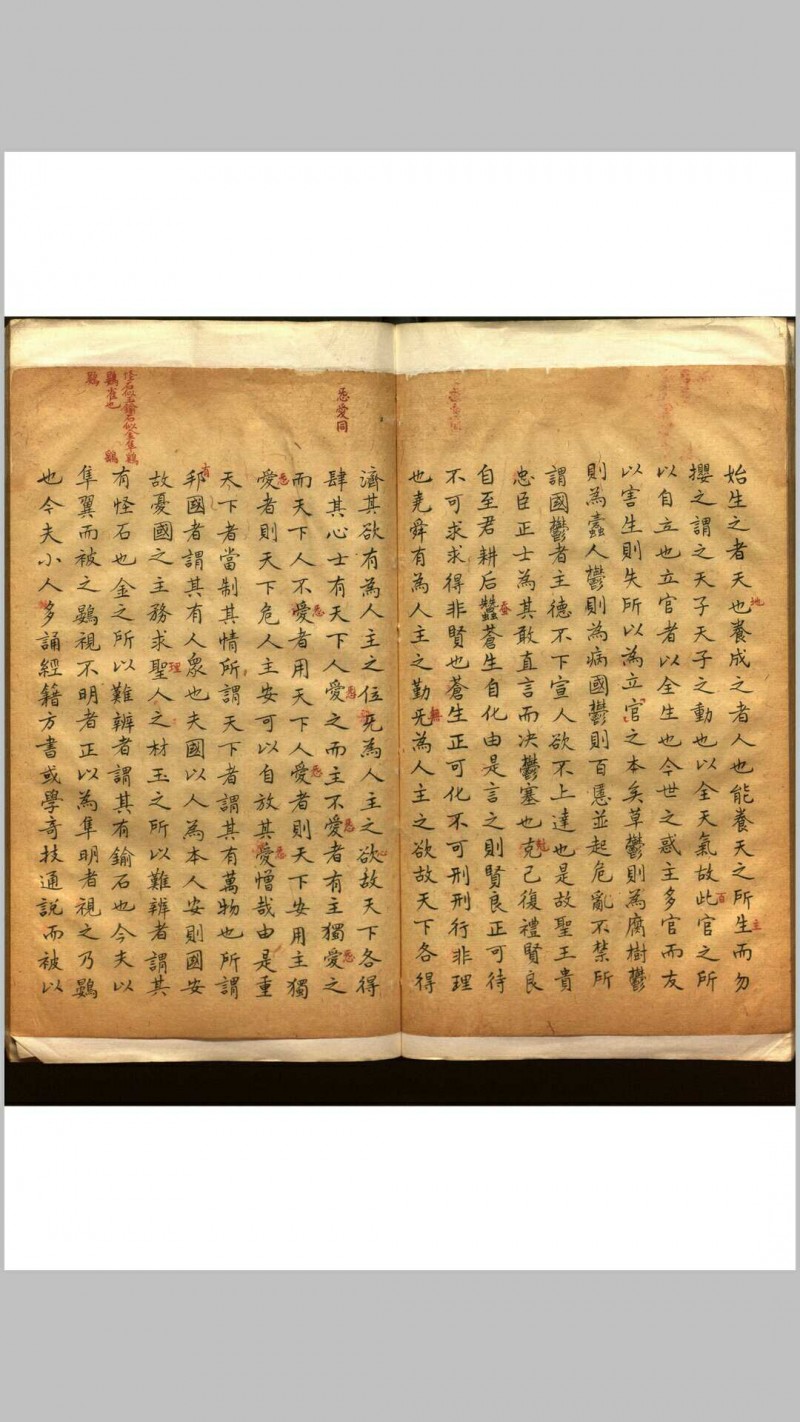 始生之者天也養成之者人也能養天之所生而勿
攖之謂之天子天子之動也以全天氣故此官之所
以自立也立官者以全生也今世之惑主多官而友
以害生則失所以為立官之本矣草鬱則為腐樹鬱
則為蠹人鬱則為病國鬱則百慝並起危亂不禁所
謂國鬱者主德不下宣人欲不上達也是故聖王貴
忠臣正士為其敢直言而决鬱塞也克己復禮賢良
自至君耕后蠶蒼生自化由是言之則賢良正可待
不可求求得非賢也蒼生正可化不可刑刑行非理
也堯舜有為人主之勤无為人主之欲故天下各得
濟其欲有為人主之位无為人主之欲故天下各得
肆其心士有天下人愛之而主不愛者有主獨愛之
而天下人不愛者用天下人愛者則天下安用主獨
愛者則天下危人主安可以自放其愛憎哉由是重
天下者當制其情所謂天下者謂其有萬物也所謂
邦國者謂其有人衆也夫國以人為本人安則國安
故憂國之主務求聖人之材玉之所以難辨者謂其
有怪石也金之所以難辨者謂其有鍮石也今夫以
隼翼而被之鷃視不明者正以為隼明者視之乃鷃
也今夫小人多誦經籍方書或學奇技通說而被以
地
主
百
蚕
無
㤅愛同
心
㤅
㤅
㤅
㤅
㤅
㤅
㤅
有
理
怪石似玉鍮石似金隼鷂
鷃雀也
鷃